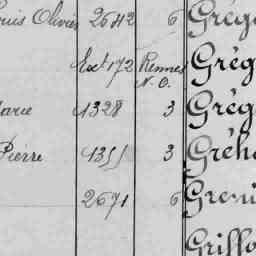 Louis Olivier 2642 6 Grég
Ext 172 Rennes N. O. Grég
Marie 1328 3 Grég
Pierre 1355 3 Gréh
2671 6 Greni
Griffo